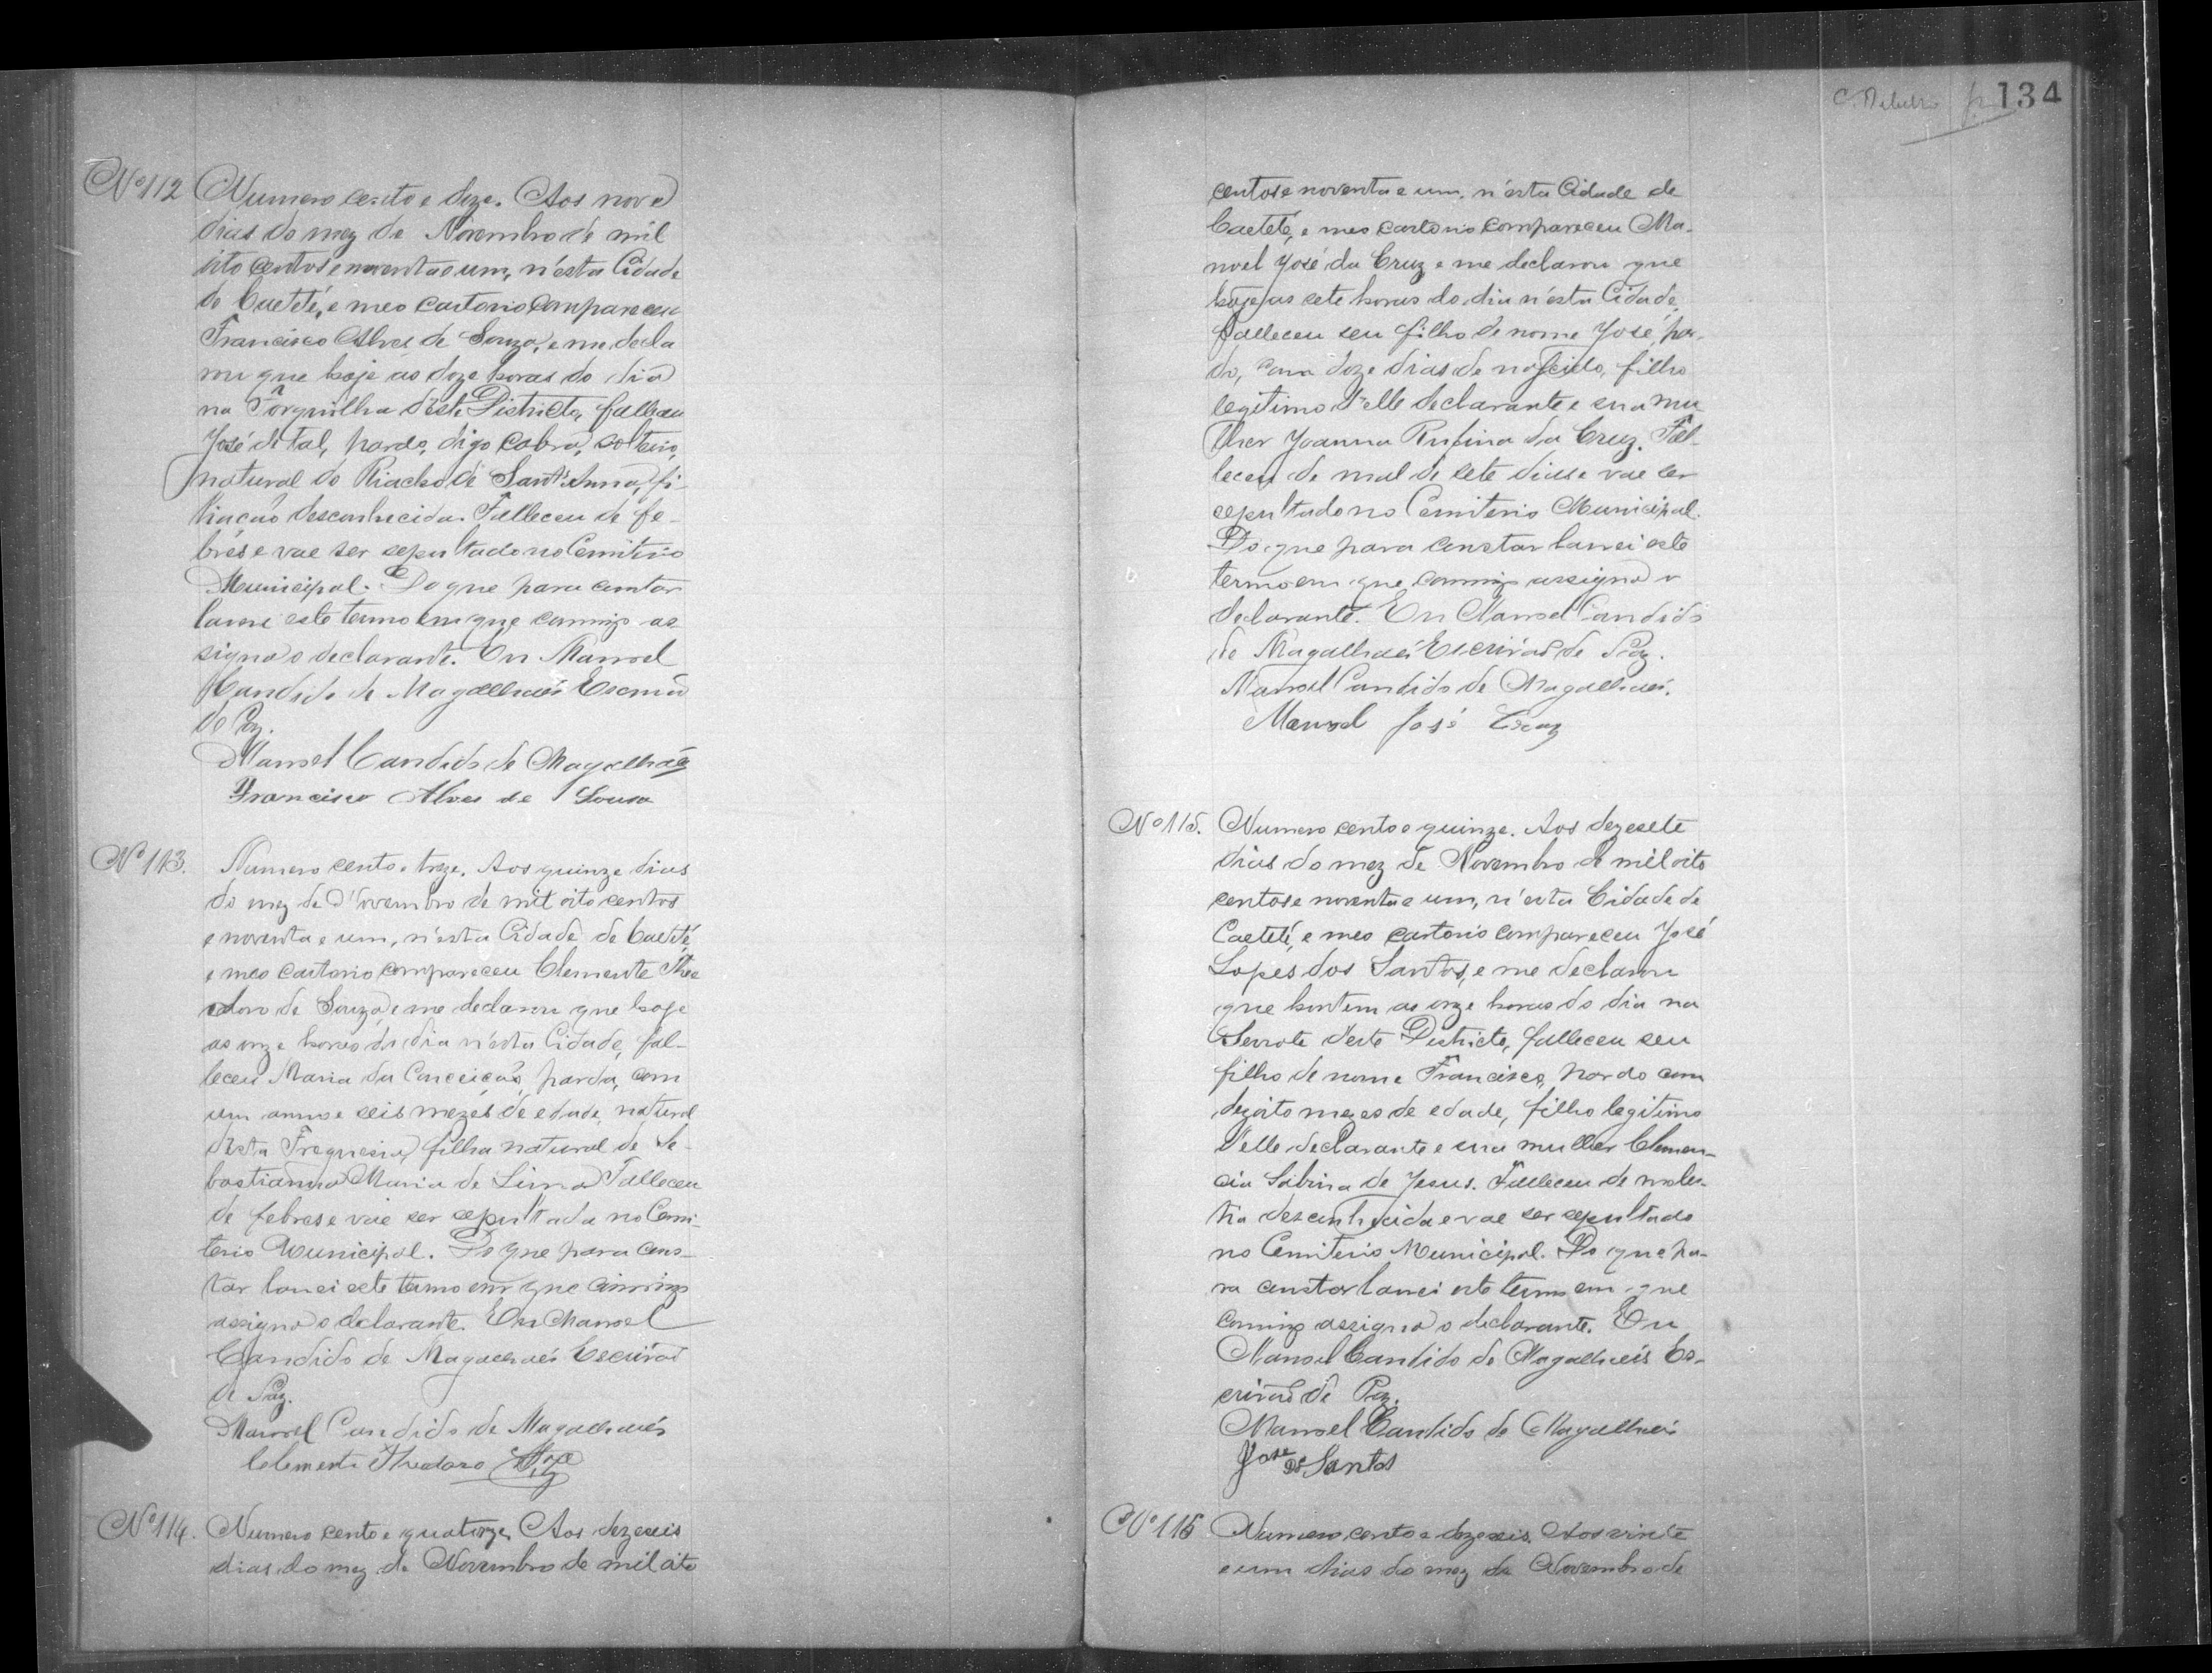 Nº 112 Numero cento e doze. Aos nove
dias do mez de Novembro de mil
oito centos e noventa e um, n'esta Cidade
de Caeteté, e meo cartorio compareceu
Francisco Alves de Souza, e me decla
rou que hoje as doze horas do dia
na Forquilha d'este Districto, falleceu
José de tal, pardo, digo cabra, solteiro,
natural do Riacho de Sant'Anna, fi-
liação desconhecida. Falleceu de fe-
bres e vae ser sepultado no Cemiterio
Municipal. Do que para constar
lavrei este termo em que commigo as
signa o declarante. Eu Manoel
Candido de Magalhães Escrivão
de Paz.
Manoel Candido de Magalhães
Francisco Alves de Sousa
Nº 113. Numero cento e treze. Aos quinze dias
do mez de Novembro de mil oito centos
e noventa e um, n'esta Cidade de Caeteté,
e meo cartorio compareceu Clemente Theo
doro de Souza, e me declarou que hoje
as onze horas do dia n'esta Cidade, fal-
leceu Maria da Conceição, parda, com
um anno e seis mezes de edade, natural
desta Freguesia, filha natural de Se-
bastianna Maria de Lima. Falleceu
de febres e vae ser sepultada no Cemi-
terio Municipal. Do que para cons-
tar lavrei este termo em que commigo
assigna o declarante. Eu Manoel
Candido de Magalhães Escrivão
de Paz.
Manoel Candido de Magalhães
Clemente Theodoro
Nº 114. Numero cento e quatorze. Aos dezeseis
dias do mez de Novembro de mil oito
134
centos e noventa e um, n'esta Cidade de
Caeteté, e meo cartorio compareceu Ma-
noel José da Cruz e me declarou que
hoje as sete horas do dia n'esta Cidade,
falleceu seu filho de nome José, par-
do, com doze dias de nascido, filho
legitimo d'elle declarante e sua mu
lher Joanna Rufina da Cruz. Fal-
leceu de mal de sete dias e vae ser
sepultado no Cemiterio Municipal.
Do que para constar lavrei este
termo em que commigo assigna o
declarante. Eu Manoel Candido
de Magalhães Escrivão de Paz.
Manoel Candido de Magalhães.
Manoel José Cruz
Nº 115. Numero cento e quinze. Aos dezesete
dias do mez de Novembro de mil oito
centos e noventa e um, n'esta Cidade de
Caeteté, e meo cartorio compareceu José
Lopes dos Santos, e me declarou
que hontem as onze horas do dia na
Serrote d'este Districto, falleceu seu
filho de nome Francisco, pardo com
dezoito mezes de edade, filho legitimo
d'elle declarante e sua mulher Clemen-
cia Sabina de Jesus. Falleceu de moles-
tia desconhecida e vae ser sepultado
no Cemiterio Municipal. Do que pa-
ra constar lavrei este termo em que
commigo assigna o declarante. Eu
Manoel Candido de Magalhães Es-
crivão de Paz.
Manoel Candido de Magalhães
José Santos
Nº 116 Numero cento e dezeseis. Aos vinte
e um dias do mez de Novembro de